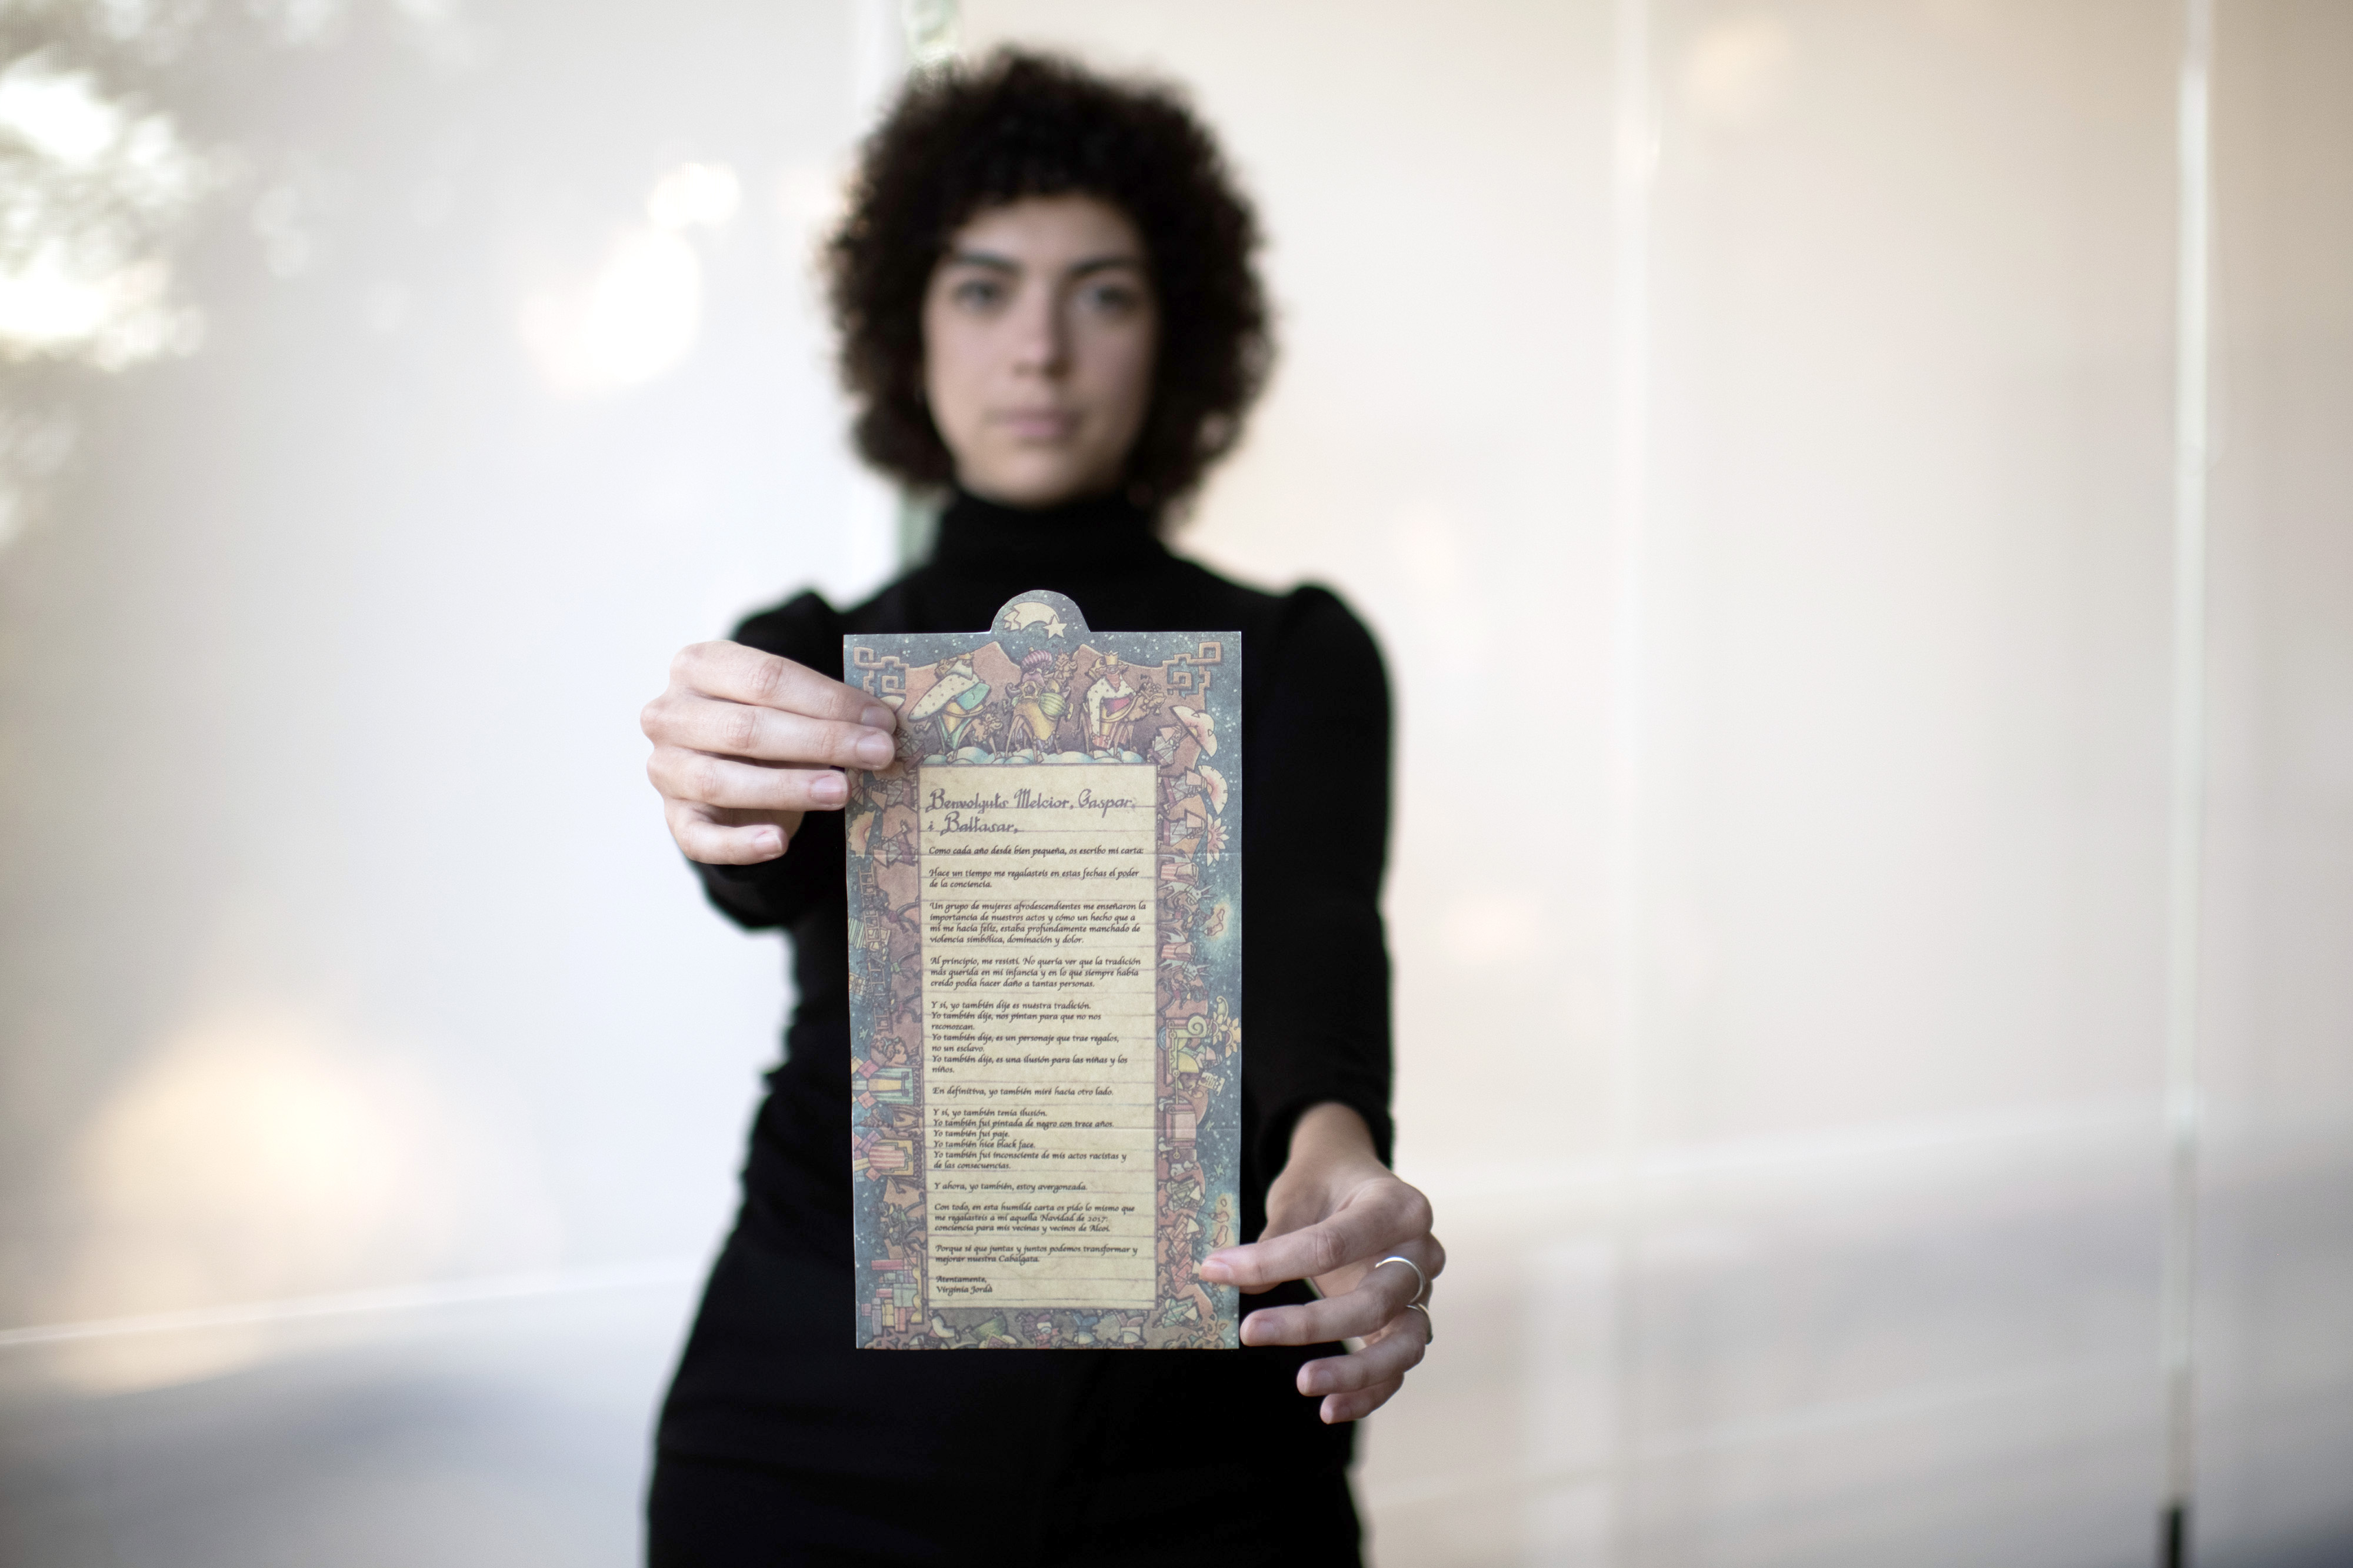 Benvolguts Melcior, Gaspar,
i Baltasar,
Como cada año desde bien pequeña, os escribo mi carta:
Hace un tiempo me regalasteis en estas fechas el poder
de la conciencia.
Un grupo de mujeres afrodescendientes me enseñaron la
importancia de nuestros actos y cómo un hecho que a
mí me hacía feliz, estaba profundamente manchado de
violencia simbólica, dominación y dolor.
Al principio, me resistí. No quería ver que la tradición
más querida en mi infancia y en lo que siempre había
creído podía hacer daño a tantas personas.
Y sí, yo también dije es nuestra tradición.
Yo también dije, nos pintan para que no nos
reconozcan.
Yo también dije, es un personaje que trae regalos,
no un esclavo.
Yo también dije, es una ilusión para las niñas y los
niños.
En definitiva, yo también miré hacia otro lado.
Y sí, yo también tenía ilusión.
Yo también fui pintada de negro con trece años.
Yo también fui paje.
Yo también hice black face.
Yo también fui inconsciente de mis actos racistas y
de las consecuencias.
Y ahora, yo también, estoy avergonzada.
Con todo, en esta humilde carta os pido lo mismo que
me regalasteis a mí aquella Navidad de 2017:
conciencia para mis vecinas y vecinos de Alcoi.
Porque sé que juntas y juntos podemos transformar y
mejorar nuestra Cabalgata.
Atentamente,
Virginia Jordà